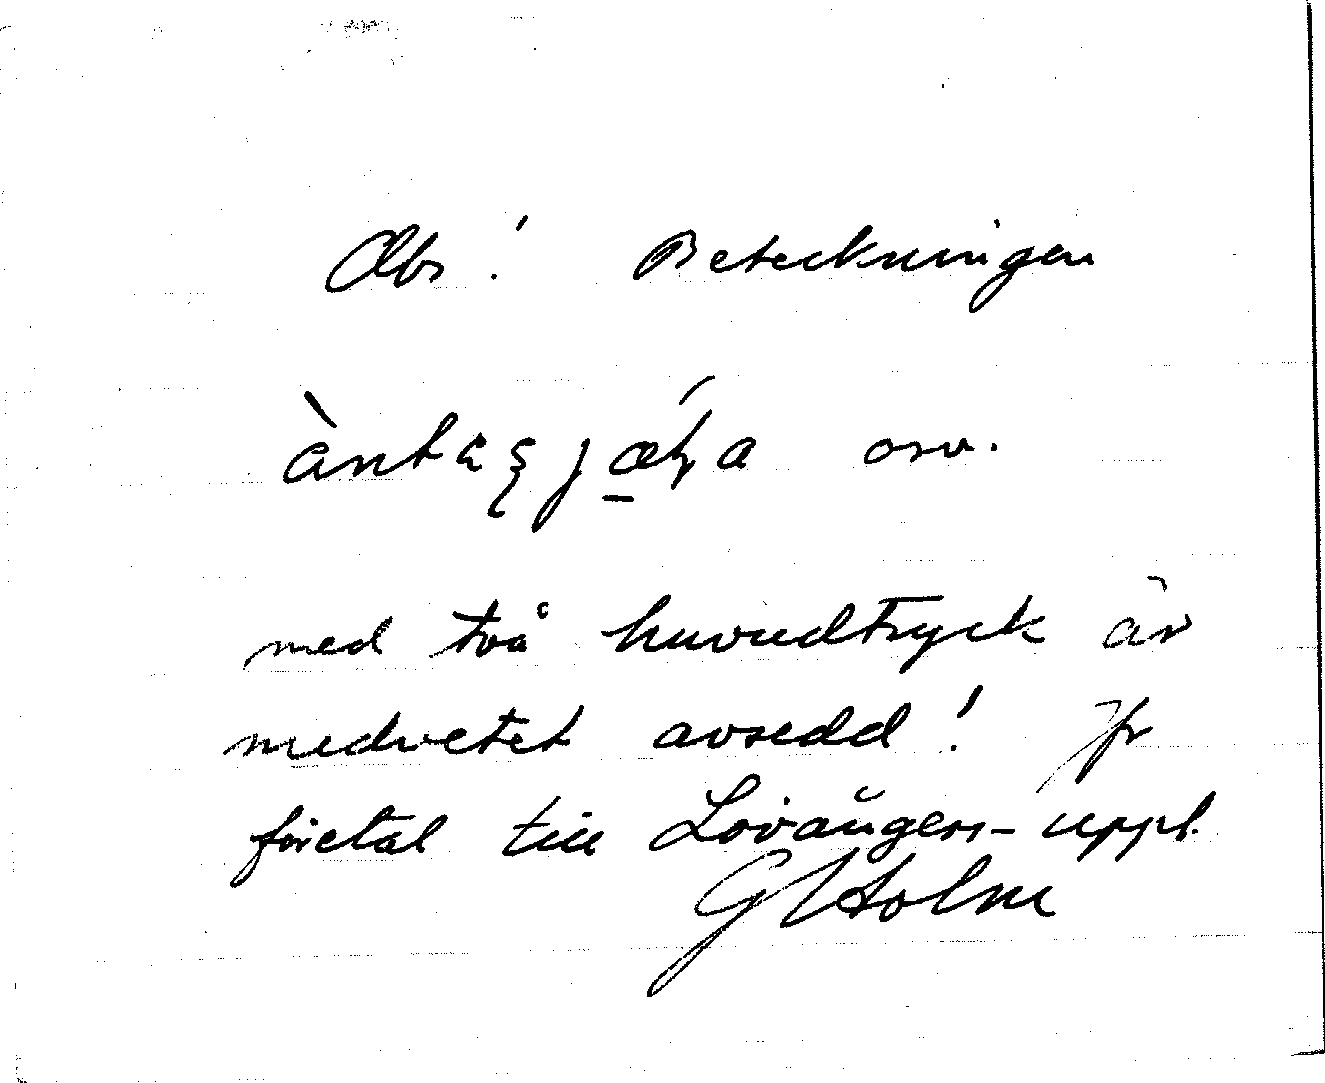 Obs! Beteckningen
osv.
med två huvudtryck är
medvetet avsedd! Jfr
företal till Lövångers-uppt.
G Holm